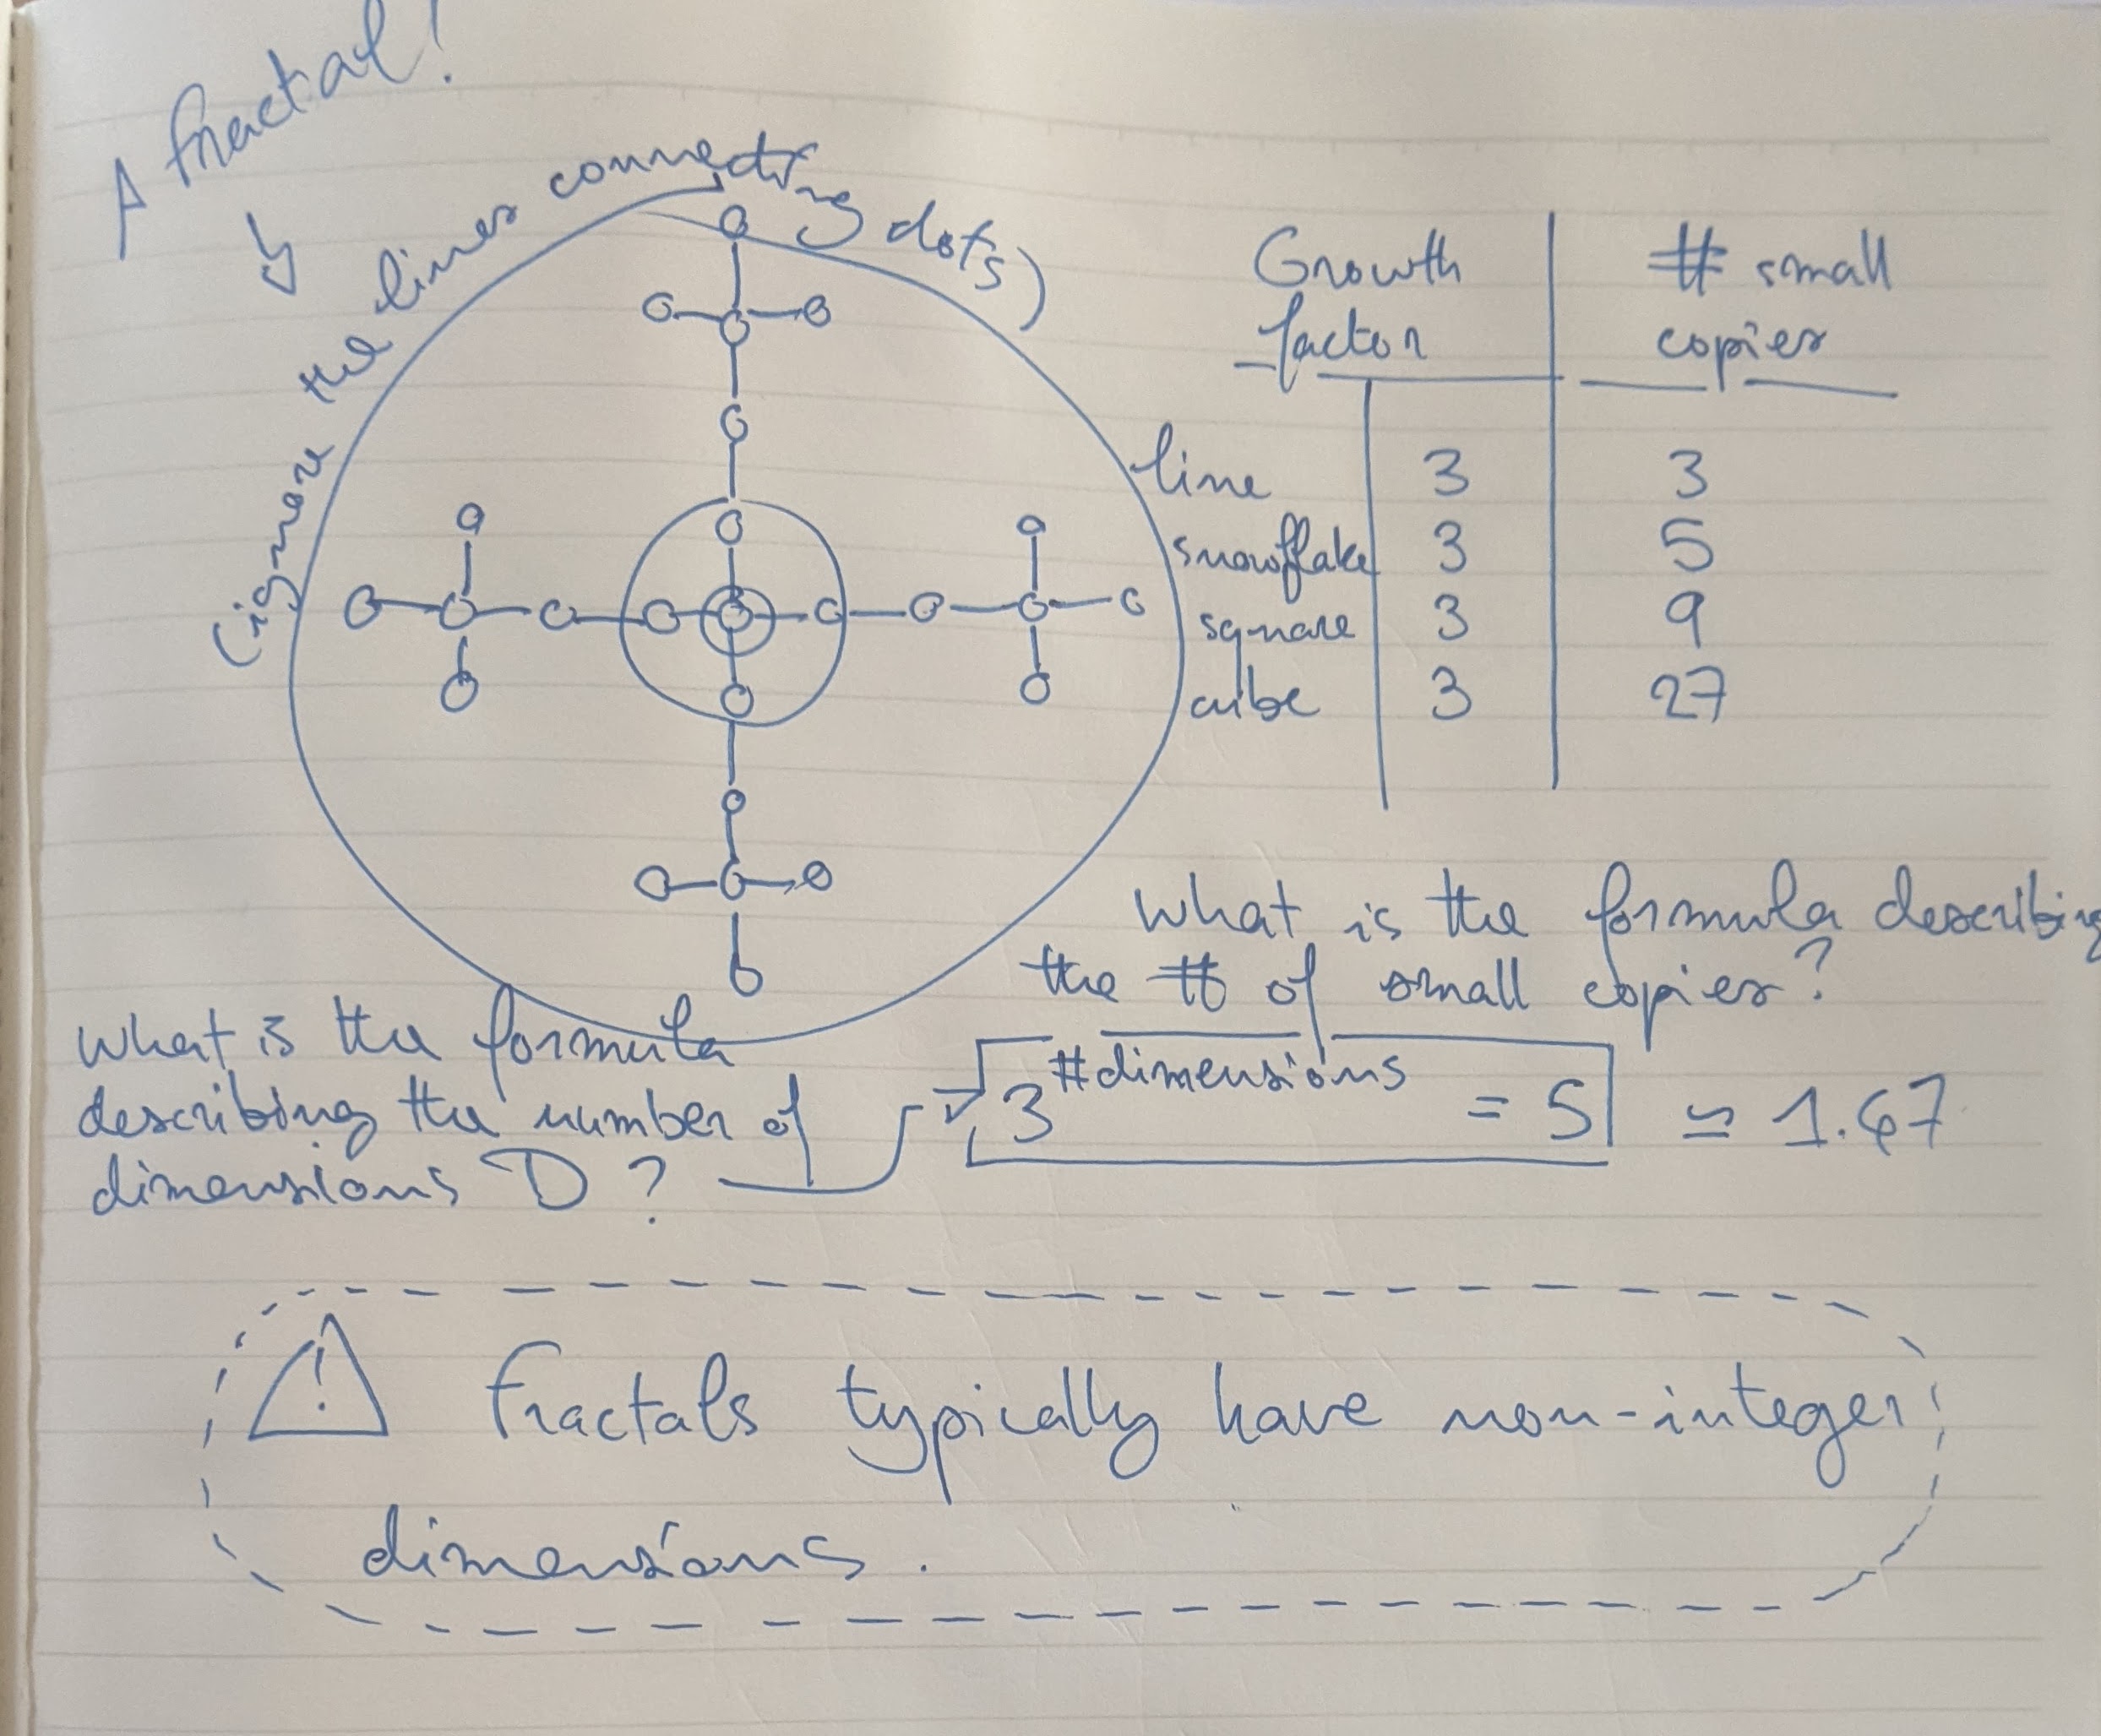 A fractal!
(ignore the lines connecting dots)
Growth factor | # small copies
line 3 3
snowflake 3 5
square 3 9
cube 3 27
What is the formula describing
the # of small copies?
What is the formula
describing the number of
dimensions D?
3^#dimensions = 5 ≃ 1.47
! Fractals typically have non-integer
dimensions.